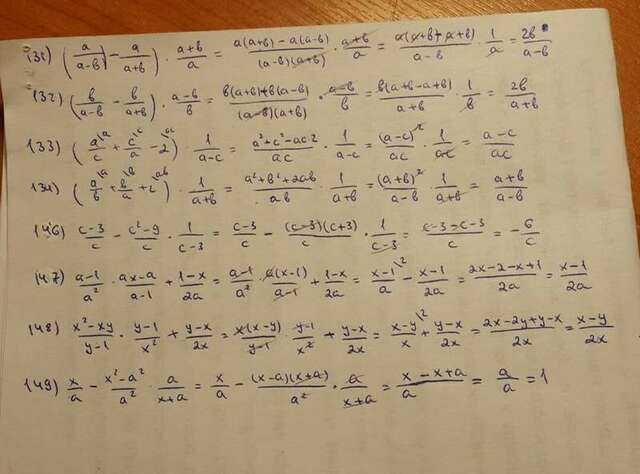 131) (a/(a-в) - a/(a+в)) · (a+в)/a = (a(a+в) - a(a-в))/((a-в)(a+в)) · (a+в)/a = a(a+в - a+в)/(a-в) · 1/a = 2в/(a-в)
132) (в/(a-в) - в/(a+в)) · (a-в)/в = (в(a+в)+в(a-в))/((a-в)(a+в)) · (a-в)/в = в(a+в-a+в)/(a+в) · 1/в = 2в/(a+в)
133) (a\a/c + c\c/a - 2\ac) · 1/(a-c) = (a²+c²-ac2)/(ac) · 1/(a-c) = (a-c)²/(ac) · 1/(a-c) = (a-c)/(ac)
134) (a\a/в + в\в/a + 2\aв) · 1/(a+в) = (a²+в²+2aв)/(aв) · 1/(a+в) = (a+в)²/(a-в) · 1/(a+в) = (a+в)/(a-в)
146) (c-3)/c - (c²-9)/c · 1/(c-3) = (c-3)/c - ((c-3)(c+3))/c · 1/(c-3) = (c-3-c-3)/c = -6/c
147) (a-1)/a² · (ax-a)/(a-1) + (1-x)/2a = (a-1)/a² · a(x-1)/(a-1) + (1-x)/2a = (x-1)\2/a - (x-1)/2a = (2x-2-x+1)/2a = (x-1)/2a
148) (x²-xy)/(y-1) · (y-1)/x² + (y-x)/2x = x(x-y)/(y-1) · (y-1)/x² + (y-x)/2x = (x-y)\2/x + (y-x)/2x = (2x-2y+y-x)/2x = (x-y)/2x
149) x/a - (x²-a²)/a² · a/(x+a) = x/a - ((x-a)(x+a))/a² · a/(x+a) = (x-x+a)/a = a/a = 1